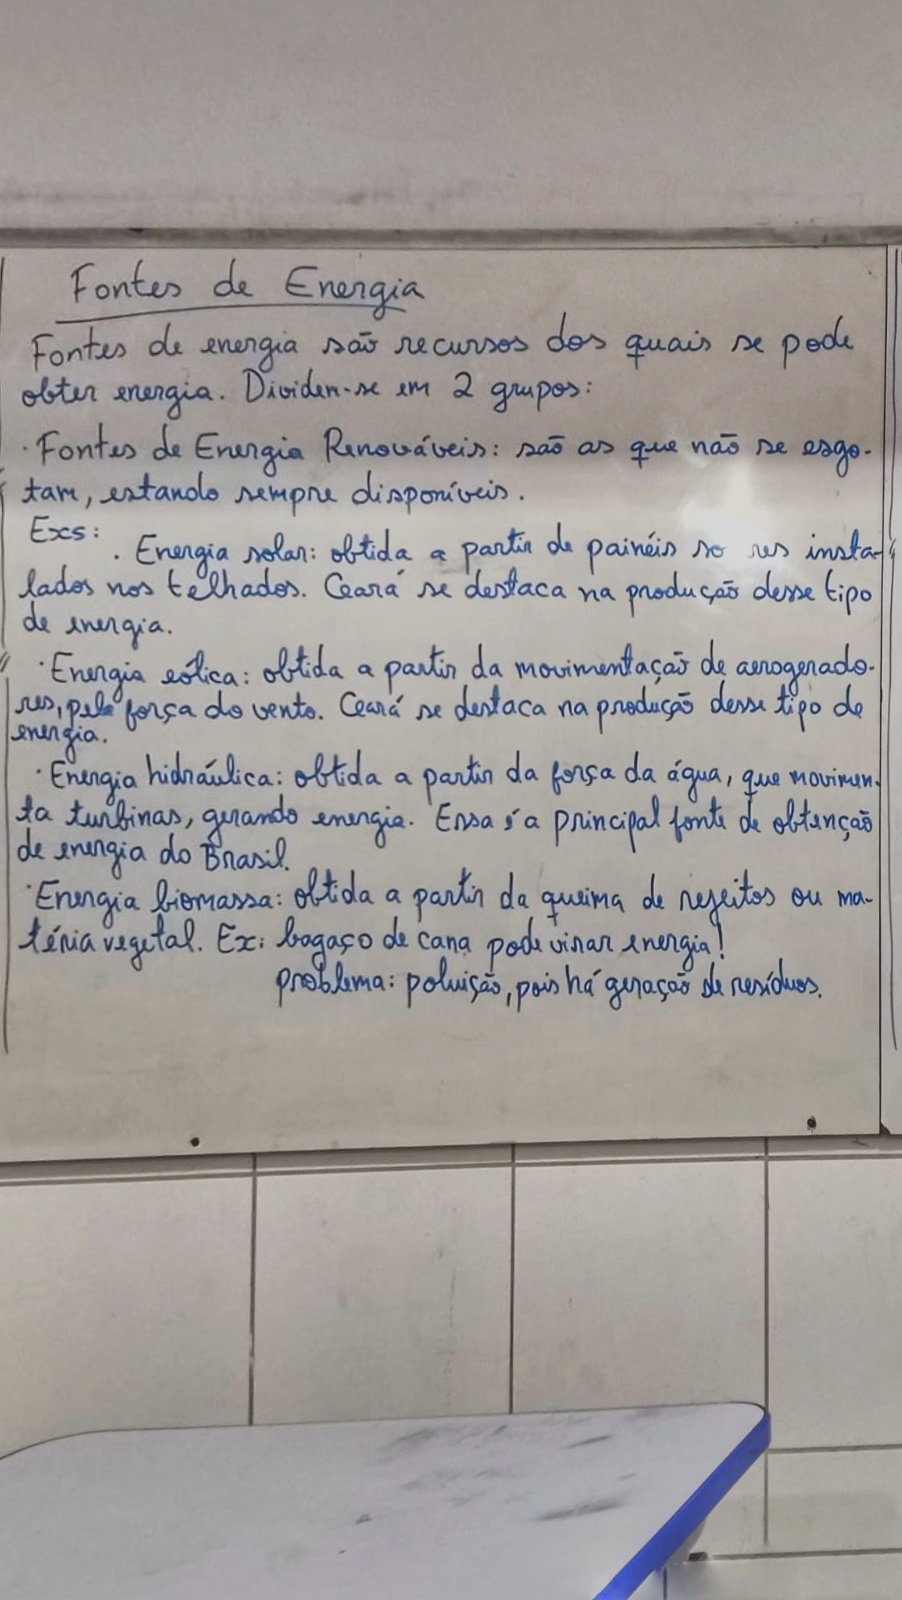 Fontes de Energia
Fontes de energia são recursos dos quais se pode
obter energia. Dividen-se em 2 grupos:
· Fontes de Energia Renováveis: são as que não se esgo-
tam, estando sempre disponíveis.
Exs:
. Energia solar: obtida a partir de painéis so res insta-
lados nos telhados. Ceará se destaca na produção desse tipo
de energia.
· Energia eólica: obtida a partir da movimentação de aerogerado-
res, pela força do vento. Ceará se destaca na produção desse tipo de
energia.
· Energia hidráulica: obtida a partir da força da água, que movimen-
ta turbinas, gerando energia. Essa é a principal fonte de obtenção
de energia do Brasil.
· Energia biomassa: obtida a partir da queima de rejeitos ou ma-
téria vegetal. Ex: bagaço de cana pode virar energia!
problema: poluição, pois há geração de resíduos.